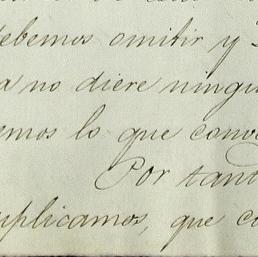 debemos omitir y
a no diere ningu
emos lo que conv
Por tant
uplicamos, que c